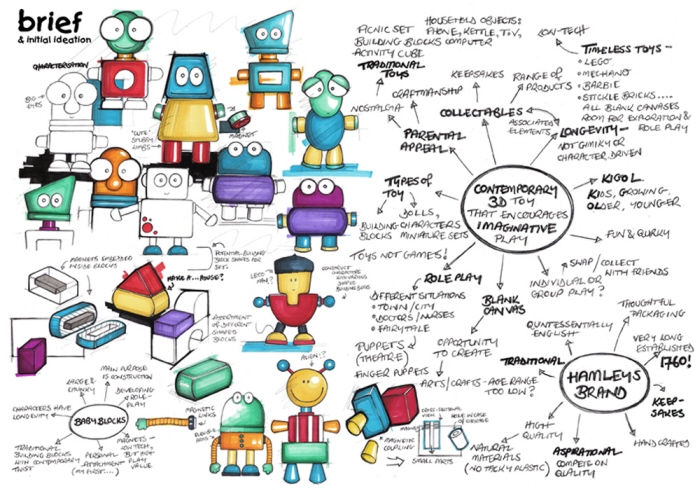 brief
& initial ideation
CHARACTERISATION
BIG
EYES
"CUTE"
STUBBY
LIMBS
MAGNET
POTENTIAL BUILDING
BLOCK SHAPES FOR
SET.
MAGNETS EMBEDDED
INSIDE BLOCKS
MAKE A...
ASSORTMENT
OF DIFFERENT
SHAPED
BLOCKS
LESS
CONSTRUCT
CHARACTERS
WITH VARIOUS
SHAPED
BUILDING BLOCKS
ALIEN?
MAGNETIC
LINKS
MAIN PURPOSE
IS CONSTRUCTION
LARGE &
CHUNKY
DEVELOPING
ROLE-
PLAY
CHARACTERS HAVE
LONGEVITY
BABY BLOCKS
TRADITIONAL
BUILDING BLOCKS
WITH CONTEMPORARY
TWIST
PERSONAL
ATTACHMENT
(MY FIRST....)
MAGNETS -
LOW TECH,
BUT GREAT
PLAY
VALUE
PICNIC SET
HOUSEHOLD OBJECTS:
PHONE, KETTLE, T.V,
BUILDING BLOCKS COMPUTER
ACTIVITY CUBE
TRADITIONAL
TOYS
LOW-TECH
TIMELESS TOYS -
• LEGO
• MECHANO
• BARBIE
• STICKLE BRICKS....
ALL BLANK CANVASES
ROOM FOR EXPLORATION &
ROLE PLAY
KEEPSAKES
RANGE OF
PRODUCTS
CRAFTMANSHIP
NOSTALGIA
COLLECTABLES
ASSOCIATED
ELEMENTS
LONGEVITY -
NOT GIMIKY OR
CHARACTER DRIVEN
PARENTAL
APPEAL
TYPES OF
TOY
DOLLS,
BUILDING CHARACTERS
BLOCKS MINIATURE SETS
CONTEMPORARY
3D TOY
THAT ENCOURAGES
IMAGINATIVE
PLAY
KIGOL
KIDS, GROWING,
OLDER, YOUNGER
FUN & QUIRKY
TOYS NOT GAMES!
SWAP/COLLECT
WITH FRIENDS
INDIVIDUAL OR
GROUP PLAY?
ROLE PLAY
DIFFERENT SITUATIONS
• TOWN/CITY
• DOCTORS/NURSES
• FAIRYTALE
BLANK
CANVAS
OPPORTUNITY
TO CREATE
PUPPETS
(THEATRE)
FINGER PUPPETS
ARTS/CRAFTS - AGE RANGE
TOO LOW?
THOUGHTFUL
PACKAGING
QUINTESSENTIALLY
ENGLISH
VERY LONG
ESTABLISHED
1760!
TRADITIONAL
HAMLEYS
BRAND
KEEP-
SAKES
HIGH
QUALITY
HANDCRAFTED
NATURAL
MATERIALS
(NO TACKY PLASTIC)
ASPIRATIONAL
COMPETE ON
QUALITY
MAGNETIC
COUPLING
CROSS-SECTIONAL
VIEW
SMALL PARTS